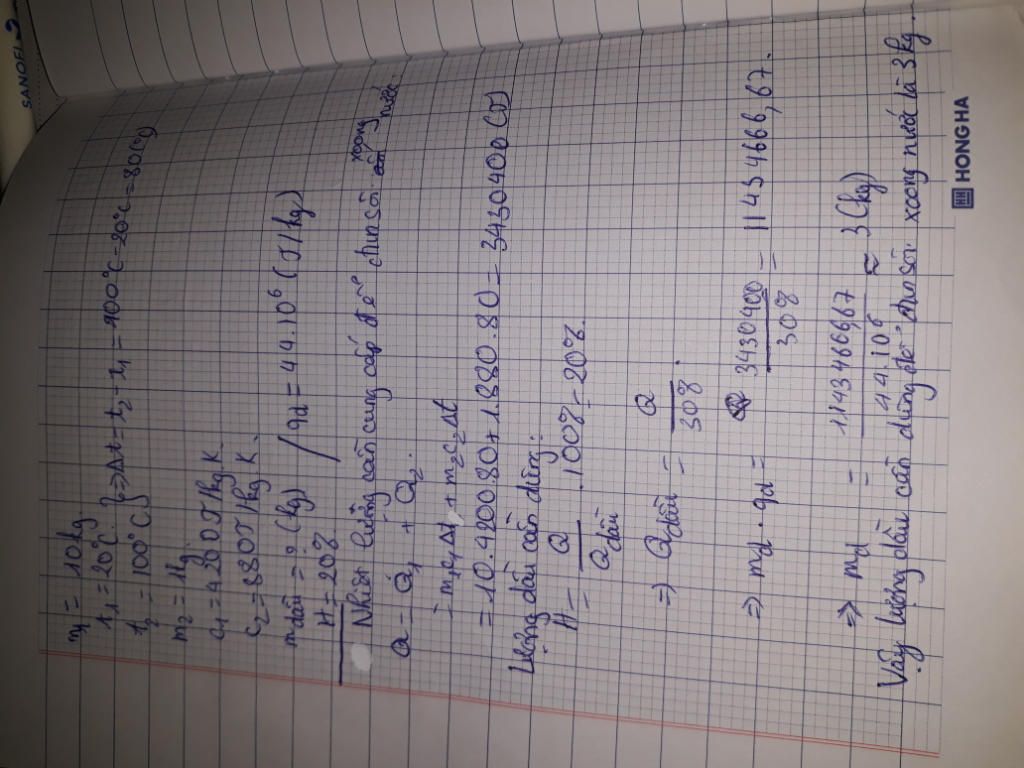 m₁ = 10kg.
t₁ = 20°C. } => Δt = t₂ - t₁ = 100°C - 20°C = 80(°C)
t₂ = 100°C.
m₂ = 1kg
c₁ = 4200J/kg.K
c₂ = 880J/kg K.
mdầu = ? (kg) / qd = 44.10⁶ (J/kg)
H = 20%
Nhiệt lượng cần cung cấp để đun sôi xoong nước.
Q = Q₁ + Q₂.
= m₁c₁Δt + m₂c₂Δt
= 10.4200.80 + 1.880.80 = 3430400 (J)
Lượng dầu cần dùng:
H = Q/Qdầu . 100% = 20%.
=> Qdầu = Q/30%.
=> md . qd = 3430400/30% = 11434666,67.
=> md = 11434666,67/44.10⁶ ≈ 3(kg)
Vậy lượng dầu cần dùng để đun sôi xoong nước là 3kg.
HONG HA